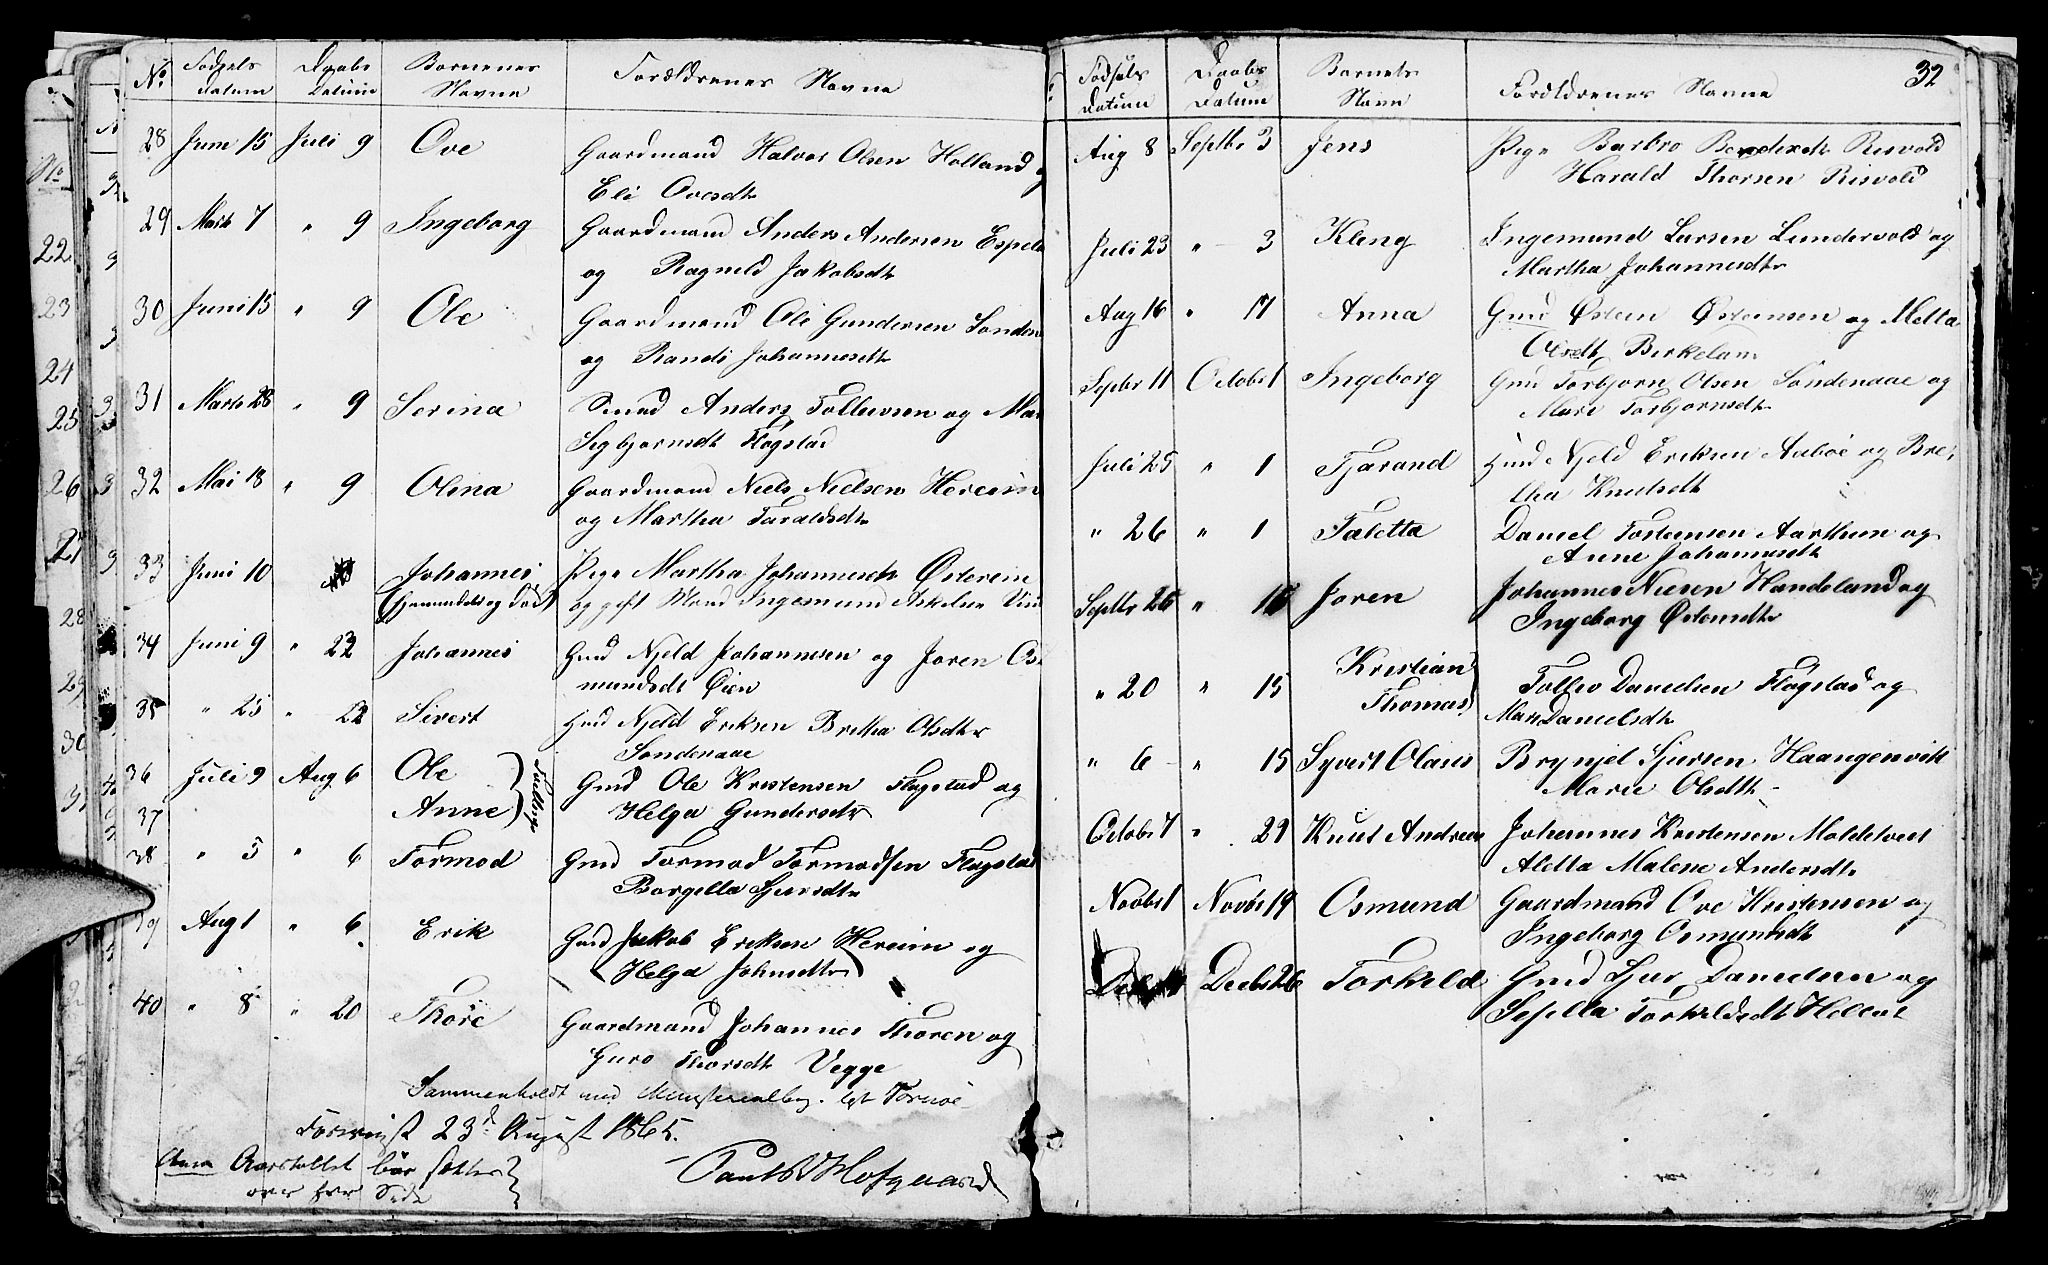 No Fødsels Datum Daabs Datum Børnenes Navne Forældrenes Navne
28 Juni 15 Juli 9 Ove Gaardmand Halvor Olsen Holland
Eli Ovesdt
29 Marts 7 " 9 Ingeborg Gaardmand Anders Andersen Espela
og Ragnild Jakobsdt
30 Juni 15 " 9 Ole Gaardmand Ole Gundersen Sønden
og Randi Johannesdt
31 Marts 28 " 9 Serina Anders Tollevsen og
Sigbjørnsdt Fløgstad
32 Mai 18 " 9 Olina Gaardmand Niels Nielsen Hereim
og Martha Taraldsdt
33 Juni 10 Johannes Pige Martha Johannesdt Østerein
(hjemmedøbt og død) og gift Mand Ingemund Askelsen
34 Juni 9 " 22 Johannes Gmd Njeld Johannesen og Joren Os-
mundsdt Øien
35 " 25 " 22 Sivert Gmd Njeld Eriksen Bretha Olsdt
Søndenaae
36 Juli 9 Aug 6 Ole Gmd Ole Kristensen Fløgstad og
37 Anne Tvillinge Helga Gundersdt
38 " 5 " 6 Tormod Gmd Tormod Tormodsen Fløgstad
Borgella Sjursdt
39 Aug 1 " 6 Erik Gmd Jakob Eriksen Hereim og
Helga Johnsdt
40 " 8 " 20 Thore Gaardmand Johannes Thoresen og
Guro Thorsdt Vegge
Sammenholdt med Ministerialbog.
23d August 1865.
Aarstallet bør sættes
over hver Side
Hofgaard
32
Fødsels Datum Daabs Datum Barnets Navn Forældrenes Navne
Aug 8 Septbr 3 Jens Pige Barbro Bendixdt Risvold
Harald Thorsen Risvold
Juli 23 " 3 Kleng Ingemund Larsen Lundervold og
Martha Johannesdt
Aug 16 " 17 Anna Gmd Østein Østeinsen og Metta
Olsdt Birkeland
Septbr 11 Octobr 1 Ingeborg Gmd Torbjørn Olsen Søndenaae og
Mari Torbjørnsdt
Juli 25 " 1 Tjerand Gmd Njeld Eriksen Aaboe og Bre-
tha Knutsdt
" 26 " 1 Taletta Daniel Torstensen Aarthun og
Anne Johannesdt
Septbr 25 " 15 Joren Johannes Nielsen Handeland og
Ingeborg Østensdt
" 20 " 15 Kristian Thomas Tollev Danielsen Fløgstad og
Mari Danielsdt
" 6 " 15 Syvert Olaus Brynjel Sjursen Haangenvik
Marie Olsdt
Octobr 7 " 29 Knut Andreas Johannes Kristensen Moldetveit
Aletta Malene Andersdt
Novbr 1 Novbr 19 Osmund Gaardmand Ove Kristensen og
Ingeborg Osmundsdt
Decbr 26 Torkeld Gmd Sjur Danielsen og
Sesella Torkeldsdt